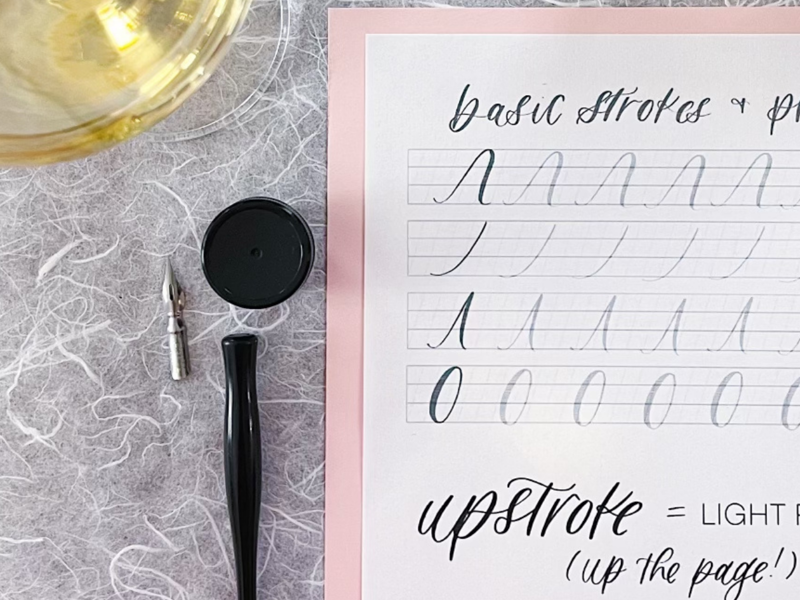 basic strokes &
upstroke = LIGHT
(up the page!)